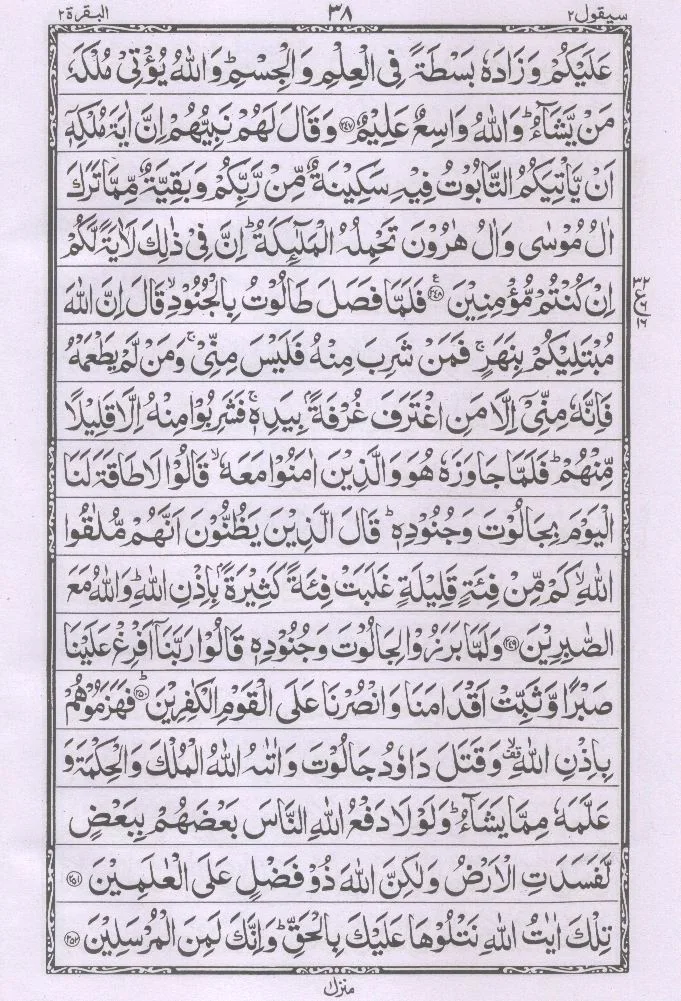 سيقول٢ ٣٨ البقرة٢
عَلَيْكُمْ وَزَادَهٗ بَسْطَةً فِي الْعِلْمِ وَالْجِسْمِ ؕ وَاللّٰهُ يُؤْتِيْ مُلْكَهٗ
مَنْ يَّشَآءُ ؕ وَاللّٰهُ وَاسِعٌ عَلِيْمٌ ﴿٢٤٧﴾ وَقَالَ لَهُمْ نَبِيُّهُمْ اِنَّ اٰيَةَ مُلْكِهٖٓ
اَنْ يَّاْتِيَكُمُ التَّابُوْتُ فِيْهِ سَكِيْنَةٌ مِّنْ رَّبِّكُمْ وَبَقِيَّةٌ مِّمَّا تَرَكَ
اٰلُ مُوْسٰى وَاٰلُ هٰرُوْنَ تَحْمِلُهُ الْمَلٰٓئِكَةُ ؕ اِنَّ فِيْ ذٰلِكَ لَاٰيَةً لَّكُمْ
اِنْ كُنْتُمْ مُّؤْمِنِيْنَ ﴿٢٤٨﴾ ع فَلَمَّا فَصَلَ طَالُوْتُ بِالْجُنُوْدِ ۙ قَالَ اِنَّ اللّٰهَ
مُبْتَلِيْكُمْ بِنَهَرٍ ۚ فَمَنْ شَرِبَ مِنْهُ فَلَيْسَ مِنِّيْ ۚ وَمَنْ لَّمْ يَطْعَمْهُ
فَاِنَّهٗ مِنِّيْٓ اِلَّا مَنِ اغْتَرَفَ غُرْفَةًۢ بِيَدِهٖ ۚ فَشَرِبُوْا مِنْهُ اِلَّا قَلِيْلًا
مِّنْهُمْ ؕ فَلَمَّا جَاوَزَهٗ هُوَ وَالَّذِيْنَ اٰمَنُوْا مَعَهٗ ۙ قَالُوْا لَا طَاقَةَ لَنَا
الْيَوْمَ بِجَالُوْتَ وَجُنُوْدِهٖ ؕ قَالَ الَّذِيْنَ يَظُنُّوْنَ اَنَّهُمْ مُّلٰقُوا
اللّٰهِ ۙ كَمْ مِّنْ فِئَةٍ قَلِيْلَةٍ غَلَبَتْ فِئَةً كَثِيْرَةًۢ بِاِذْنِ اللّٰهِ ؕ وَاللّٰهُ مَعَ
الصّٰبِرِيْنَ ﴿٢٤٩﴾ وَلَمَّا بَرَزُوْا لِجَالُوْتَ وَجُنُوْدِهٖ قَالُوْا رَبَّنَآ اَفْرِغْ عَلَيْنَا
صَبْرًا وَّثَبِّتْ اَقْدَامَنَا وَانْصُرْنَا عَلَى الْقَوْمِ الْكٰفِرِيْنَ ﴿٢٥٠﴾ ؕ فَهَزَمُوْهُمْ
بِاِذْنِ اللّٰهِ ۙ وَقَتَلَ دَاوٗدُ جَالُوْتَ وَاٰتٰىهُ اللّٰهُ الْمُلْكَ وَالْحِكْمَةَ وَ
عَلَّمَهٗ مِمَّا يَشَآءُ ؕ وَلَوْلَا دَفْعُ اللّٰهِ النَّاسَ بَعْضَهُمْ بِبَعْضٍ
لَّفَسَدَتِ الْاَرْضُ وَلٰكِنَّ اللّٰهَ ذُوْ فَضْلٍ عَلَى الْعٰلَمِيْنَ ﴿٢٥١﴾
تِلْكَ اٰيٰتُ اللّٰهِ نَتْلُوْهَا عَلَيْكَ بِالْحَقِّ ؕ وَاِنَّكَ لَمِنَ الْمُرْسَلِيْنَ ﴿٢٥٢﴾
منزل